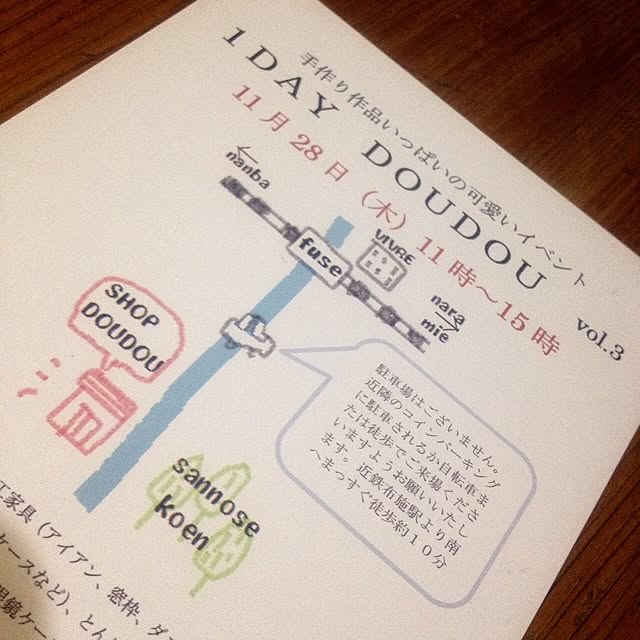 手作り作品いっぱいの可愛いイベント
1DAY DOUDOU vol.3
11月28日(木)11時～15時
nanba
fuse
VIVRE
nara
mie
SHOP
DOUDOU
sannose
koen
駐車場はございません。
近隣のコインパーキング
に駐車されるか自転車ま
たは徒歩でご来場くださ
いますようお願いいたし
ます。近鉄布施駅より南
へまっすぐ徒歩約10分
工家具(アイアン、窓枠、
ケースなど)、とん
眼鏡ケー